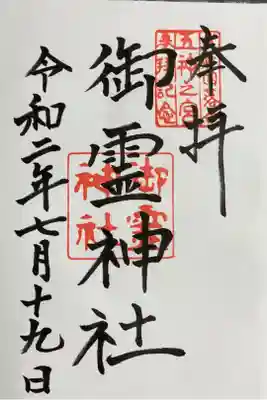 奉拝
五神之宮
来拝記念
御霊神社
御霊
神社
令和二年七月十九日